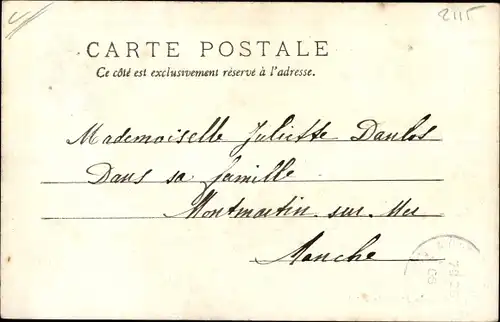 2115
CARTE POSTALE
Ce côté est exclusivement réservé à l'adresse.
Mademoiselle Juliette Danlos
Dans sa famille
Montmartin sur Mer
Manche